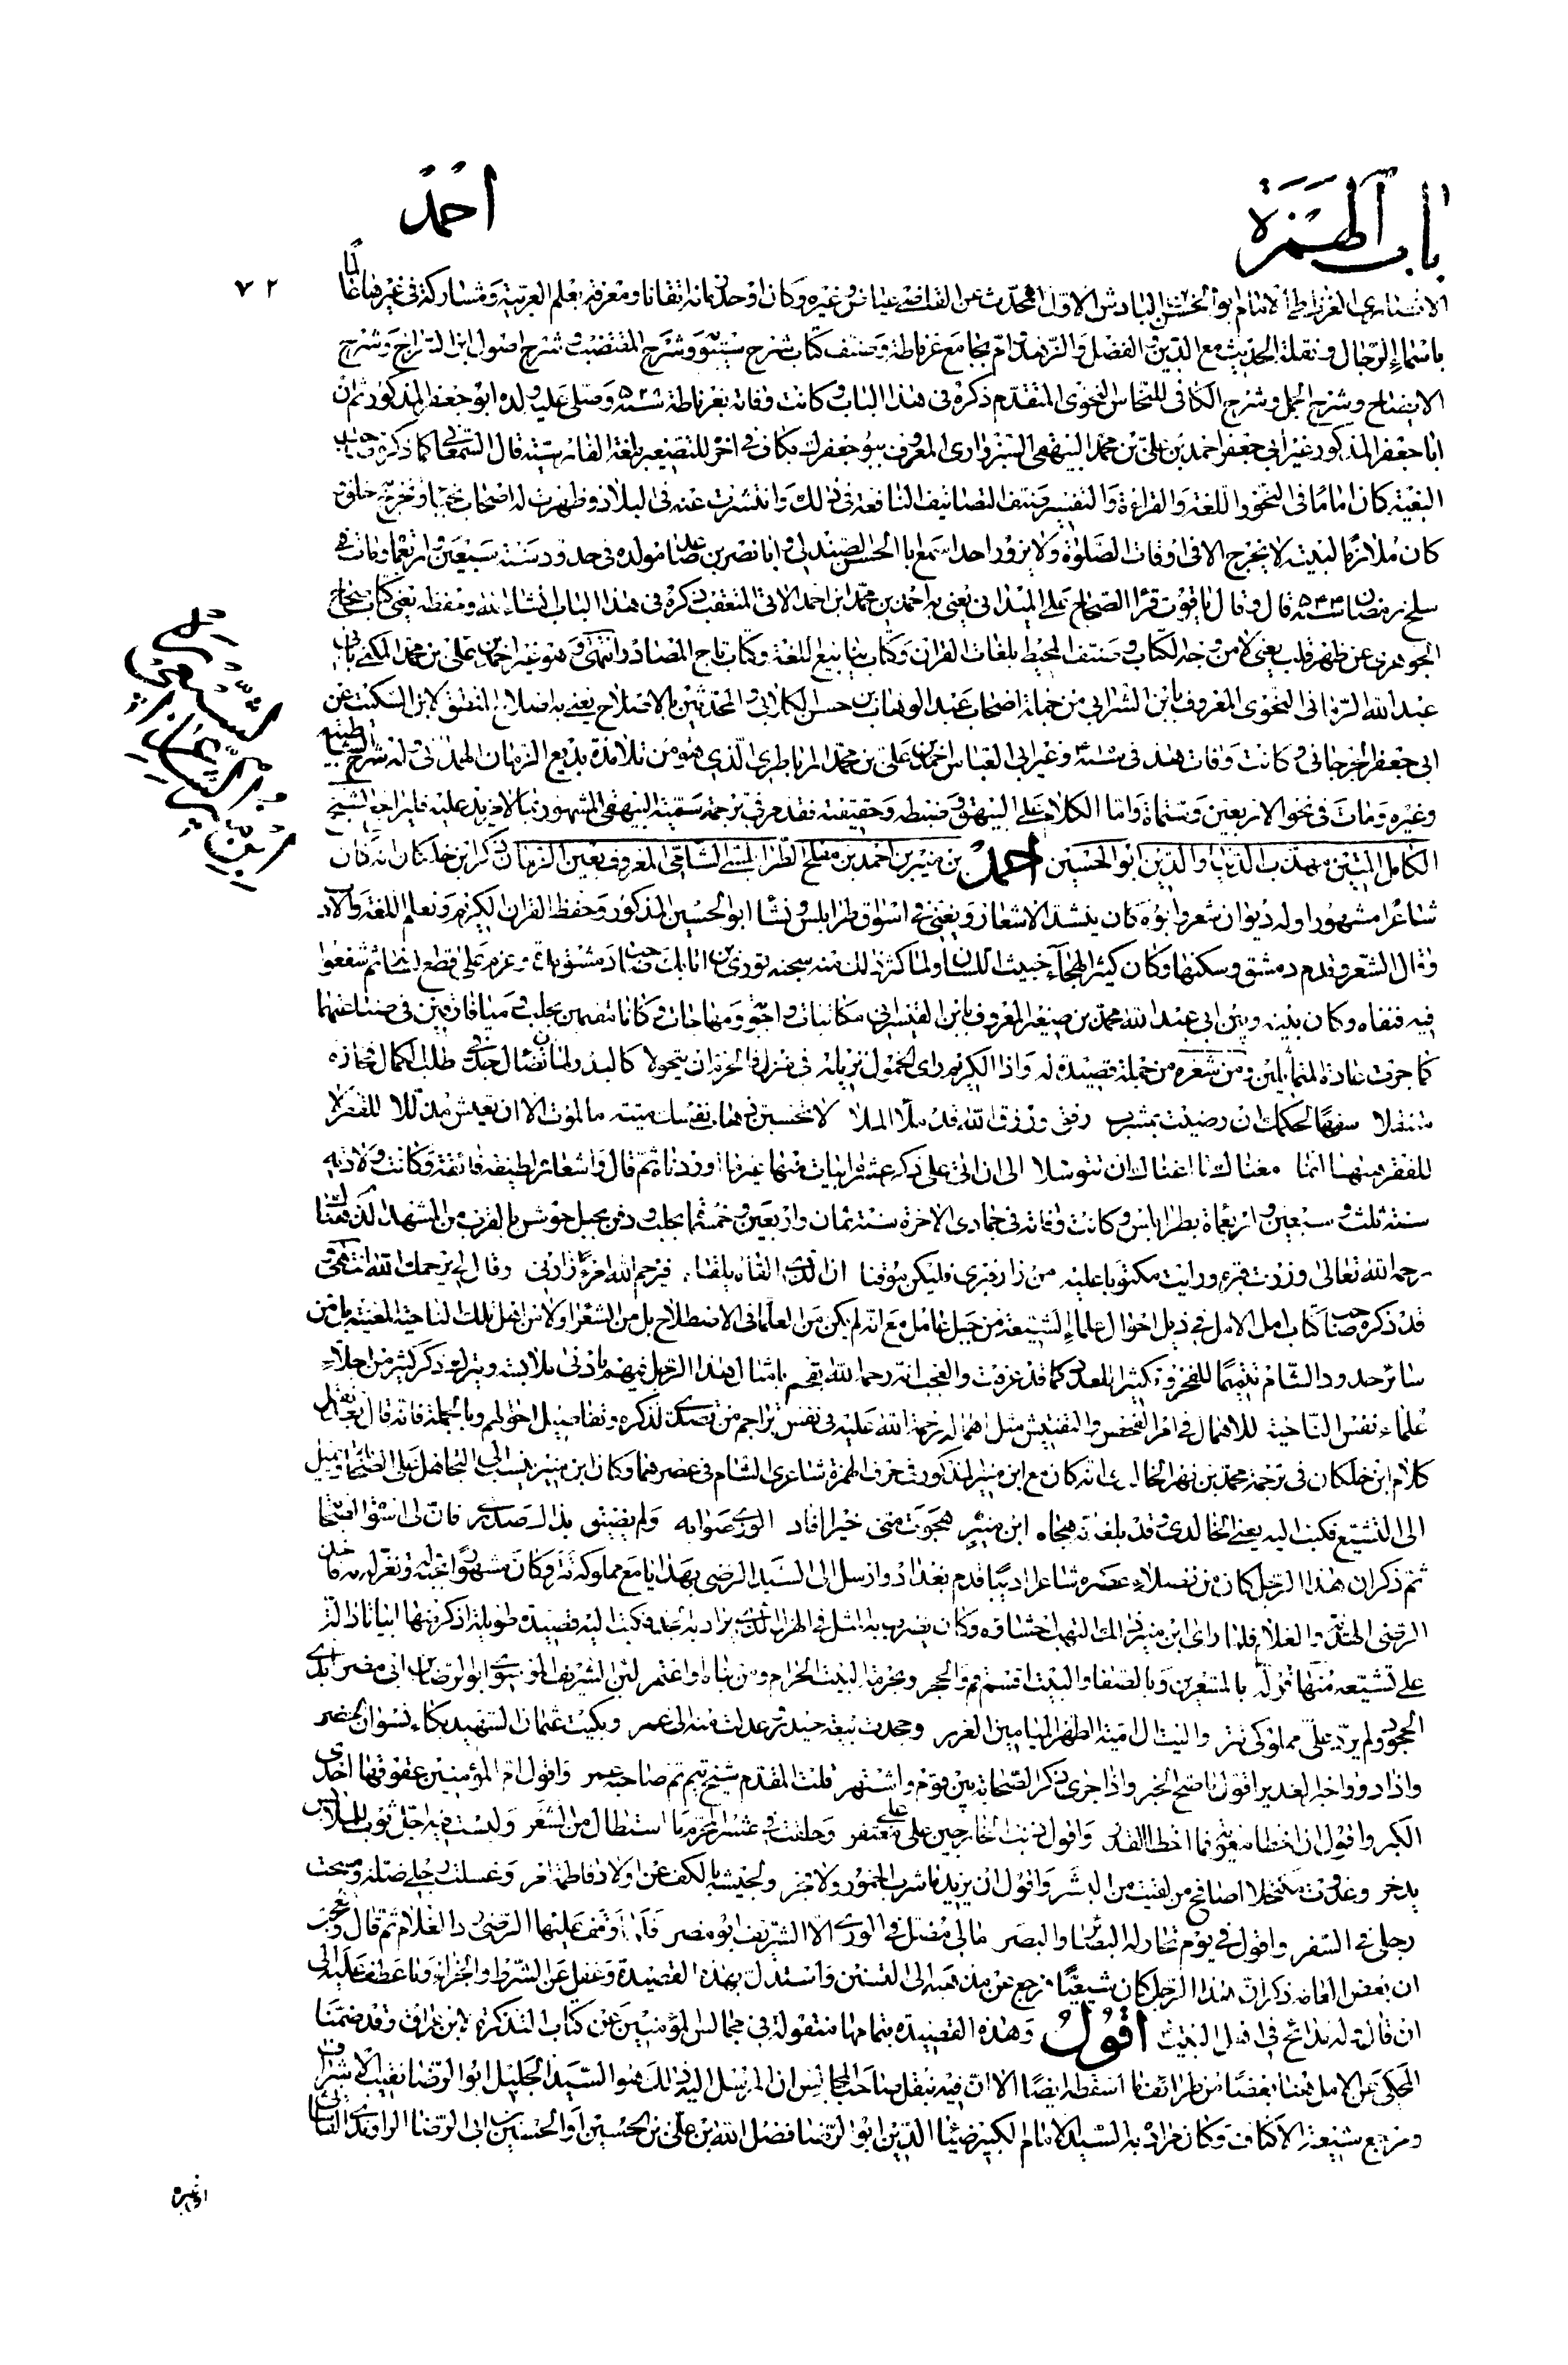 باب الهمزة
احمد
٧٢
الانصاري الغرناطي الامام ابو الحسن البادش الاول المحدث عن القاضي عياض وغيره وكان اوحد زمانه اتقانا ومعرفة بعلم العربية ومشاركة في غيرها عالما
باسماء الرجال ونقلة الحديث مع الدين والفضل والزهد ام بجامع غرناطة وصنف كتاب شرح سيبويه وشرح المقتضب وشرح اصول ابن السراج وشرح
الايضاح وشرح الجمل وشرح الكافي للنحاس النحوي المتقدم ذكره في هذا الباب وكانت وفاته بغرناطة سنة وصلى عليه ولده ابو جعفر المذكور ثم ان
ابا جعفر المذكور غير ابي جعفر احمد بن علي بن محمد البيهقي السبزواري المعروف ببو جعفرك بكاف في اخر للتصغير بلغة الفارسية قال السمعاني كما ذكره صاحب
البغية كان اماما في النحو واللغة والقراءة والتفسير صنف التصانيف النافعة في ذلك وانتشرت عنه في البلاد وظهرت له اصحاب نجبا وتخرج به خلق
كان ملازما لبيته لا يخرج الا في اوقات الصلوة ولا يزور احدا سمع ابا الحسن الصندلي وابا نصر بن صاعد مولده في حدود سنة سبعين واربعمأة ومات في
سلخ رمضان سنة ٥٤٤ قال وقال ياقوت قرأ الصحاح على الميداني يعني به احمد بن محمد ابن احمد الاتي المتعقب ذكره في هذا الباب انشاء الله وحفظه يعني كتاب صحاح
الجوهري عن ظهر قلب يعني لا من وجه الكتاب وصنف المحيط بلغات القران وكتاب ينابيع اللغة وكتاب تاج المصادر انتهى وهو غير احمد بن علي بن محمد المكنى بابي
عبد الله الرماني النحوي المعروف بابن الشرابي من جملة اصحاب عبد الوهاب بن حسن الكلابي والمحدثين بالاصلاح يعني به اصلاح المنطق لابن السكيت عن
ابي جعفر الجرجاني وكانت وفات هذا في سنة وغير ابي العباس احمد بن علي بن محمد الرباطري الذي هو من تلامذة بديع الزمان الهمذاني وله شرح الشاطبية
وغيره ومات في نحو الاربعين وستمأة واما الكلام على البيهقي وضبطه وحقيقته فقد مر في ترجمة سميه البيهقي المشهور بما لا مزيد عليه فليراجع الشيخ
الكامل المتين مهذب الدنيا والدين ابو الحسين احمد بن منير بن احمد بن مفلح الطرابلسي الشامي المعروف بعين الزمان ذكر ابن خلكان انه كان
شاعرا مشهورا وله ديوان شعر وابوه كان ينشد الاشعار ويغني في اسواق طرابلس ونشأ ابو الحسين المذكور وحفظ القران الكريم وتعلم اللغة والادب
وقال الشعر وقدم دمشق وسكنها وكان كثير الهجاء خبيث اللسان ولما كثر ذلك منه سجنه بوري بن اتابك صاحب دمشق مدة وعزم على قطع لسانه ثم شفعوا
فيه فنفاه وكان بينه وبين ابي عبد الله محمد بن صغير المعروف بابن القيسراني مكاتبات واجوبة ومهاجات وكانا مقيمين بحلب ومتنافسين في صناعتهما
كما جرت عادة المتماثلين ومن شعره من جملة قصيدة له واذا الكريم راى الخمول نزيله في منزل فالحزم ان يتحولا كالبدر لما ان تضائل جد في طلب الكمال فحازه
متنقلا سفها لحلمك ان رضيت بمشرب رنق ورزق الله قد ملأ الملا لا تحسبن ذهاب نفسك ميتة ما الموت الا ان تعيش مذللا للقفر لا
للفقر هبها انما مغناك ما اغناك ان تتوسلا الى ان اتى على ذكر عشرة ابيات منها غير ما اوردناه ثم قال واشعاره لطيفة فائقة وكانت ولادته
سنة ثلث وسبعين واربعمأة بطرابلس وكانت وفاته في جمادى الاخرة سنة ثمان واربعين وخمسمأة بحلب ودفن بجبل جوشن بالقرب من المشهد الذي هناك
رحمه الله تعالى وزرت قبره ورايت مكتوبا عليه من زار قبري فليكن موقنا ان الذي القاه يلقاه فيرحم الله امرءا زارني وقال لي يرحمك الله انتهى وقد
قد ذكره صاحب كتاب امل الامل في ذيل احوال علماء الشيعة من جبل عامل مع انه لم يكن من العلماء في الاصطلاح بل من الشعرا ولا من اهل تلك الناحية المعينة بل من
سائر حدود الشام تتميما للفخر وتكثيرا للعدد كما قد عرفت والعجب انه رحمه الله يقحم بامثال هذا الرجل فيهم بادنى ملابسة ويترك ذكر كثير من اجلاء
علماء نفس الناحية للاهمال في امر الفحص والتفتيش مثل اهماله رحمة الله عليه في نفس تراجم من تصدى لذكره وتفاصيل احوالهم وبالجملة فانه قال بعد نقل
كلام ابن خلكان في ترجمة محمد بن نصر الخالدي انه كان مع ابن منير المذكور في حرف الهمزة شاعري الشام في عصرهما وكان ابن منير ينسب الى التحامل على الصحابة ويميل
الى التشيع فكتب اليه يعني الخالدي وقد بلغه انه هجاه ابن منير هجوت مني خيرا افاد الورى صوابه ولم يضيق بذاك صدري فان لي اسوة الصحابة
ثم ذكر ان هذا الرجل كان من فضلاء عصره شاعرا اديبا قدم بغداد وارسل الى السيد الرضي بهدايا مع مملوكه تتر وكان مشهورا بحبه وتغزله به فاخذ
الرضي الهدية والغلام فلما راى ابن منير ذلك التهب احشاؤه وكان يضرب به المثل في الهزل الذي يراد به الجد فكتب اليه قصيدة طويلة اذكر منها ابياتا دالة
على تشيعه منها قوله بالمشعرين وبالصفا والبيت اقسم والحجر وبحرمة البيت الحرام ومن بناه واعتمر لئن الشريف الموسوي ابو الرضا بن ابي مضر ابدى
الجحود ولم يرد علي مملوكي تتر واليت ال امية الطهر الميامين الغرر وجحدت بيعة حيدر وعدلت منه الى عمر وبكيت عثمان الشهيد بكاء نسوان الحضر
واذا رووا خبر الغدير اقول ما صح الخبر واذا جرى ذكر الصحابة بين قوم واشتهر قلت المقدم شيخ تيم ثم صاحبه عمر واقول ام المؤمنين عقوقها احدى
الكبر واقول ان اخطا معوية فما اخطا القدر واقول ذنب الخارجين على علي مغتفر وحلقت في عشر المحرم ما استطال من الشعر ولبست فيه اجل ثوب للملابس
يدخر وغدوت مكتحلا اصافح من لقيت من البشر واقول ان يزيد ما شرب الخمور ولا فجر ولجيشه بالكف عن اولاد فاطمة امر وغسلت رجلي ضلة ومسحت
رجلي في السفر واقول في يوم تحار له البصائر والبصر مالي مضل في الورى الا الشريف ابو مضر فلما وقف عليها الرضي رد الغلام ثم قال وعجب
ان بعض العامة ذكر ان هذا الرجل كان شيعيا فرجع عن مذهبه الى التسنن واستدل بهذه القصيدة وغفل عن الشرط والجزاء وما عطف عليه الى
ان قال وله مدائح في اهل البيت اقول وهذه القصيدة بتمامها منقولة في مجالس المؤمنين عن كتاب التذكرة لابن عراق وقد ضمنا
المحكي عن الامل هنا بعضا من طرائفها اسقطه ايضا الا ان فيه بنقل صاحب المجالس ان المرسل اليه ذلك هو السيد الجليل ابو الرضا نقيب الاشراف
ومرجع شيعة الاكناف وكان مراده به السيد الامام الكبير ضياء الدين ابو الرضا فضل الله بن علي بن الحسين او الحسن بن ابي الرضا الراوندي القاساني
او غيره